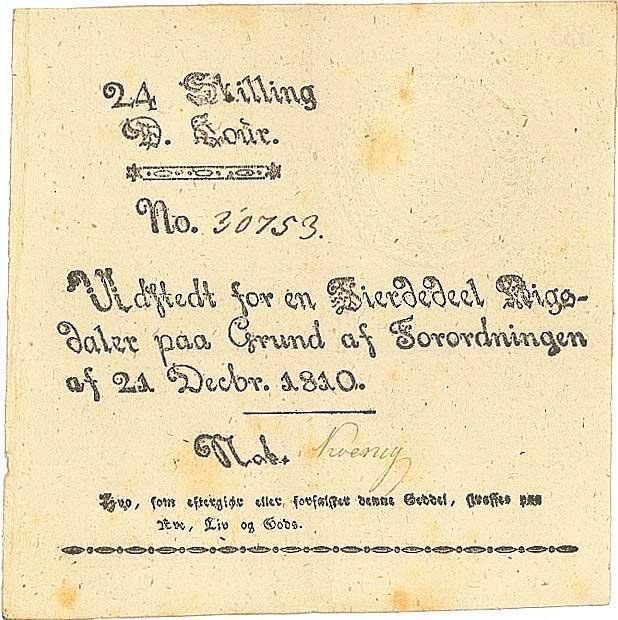 24 Skilling
D. Cour.
No. 30753.
Udstedt for en Fierdedeel Rigs-
daler paa Grund af Forordningen
af 21 Decbr. 1810.
Nok.
Hvo, som eftergiør eller forfalsker denne Seddel, straffes paa
Ære, Liv og Gods.